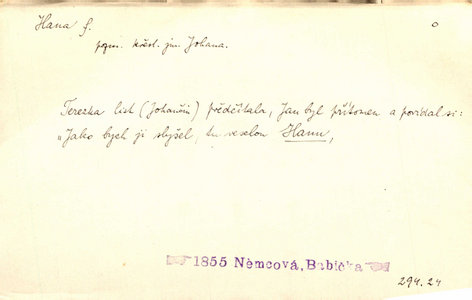 Hana f. o
pozn. křest. jm. Johana.
Terezka list (Johančin) předčítala, Jan byl přítomen a povídal si:
„Jako bych ji slyšel, tu veselou Hanu,
1855 Němcová, Babička
294.24